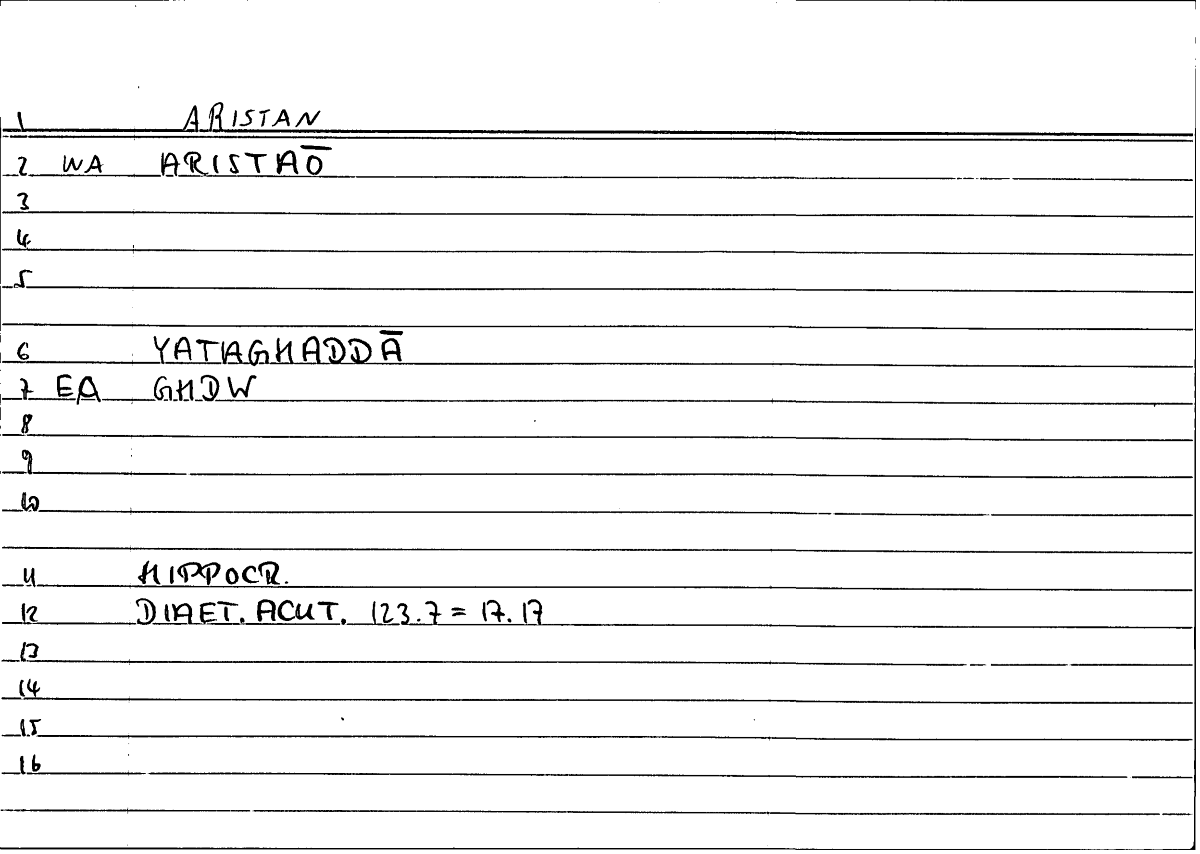 1 ARISTAN
2 WA ARISTAŌ
3
4
5
6 YATAGHADDĀ
7 EA GHDW
8
9
10
11 HIPPOCR.
12 DIAET. ACUT. 123.7 = 17.17
13
14
15
16